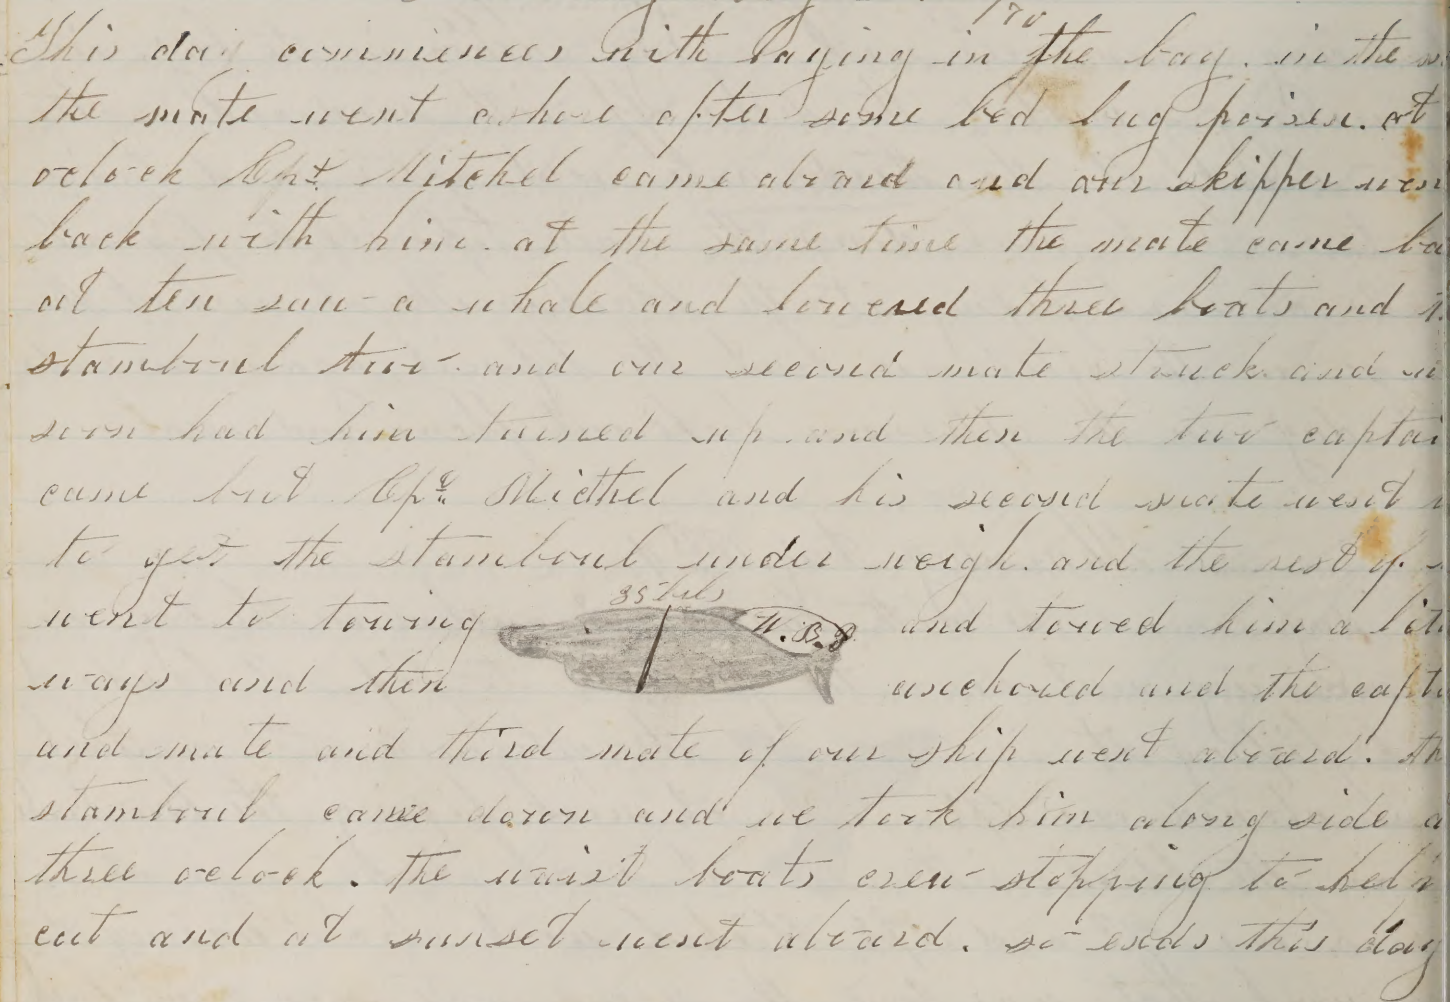 170
This day commences with laying in the bay. in the
the mate went ashore after some bed bug poisen. at
oclock Cpt. Mitchel came aboard and our skipper wen
back with him. at the same time the mate came ba
at ten saw a whale and lowered three boats and
stamboul two. and our second mate struck and w
soon had him turned up and then the two captai
came but Cpt. Micthel and his second mate went
to get the stamboul under weigh. and the rest of
85 bbls
went to towing W.B.B. and towed him a litt
ways and then anchored and the capt
and mate and third mate of our ship went aboard. th
stamboul came down and we took him along side a
three oclock. the waist boats crew stopping to help
cut and at sunset went aboard. so ends this day